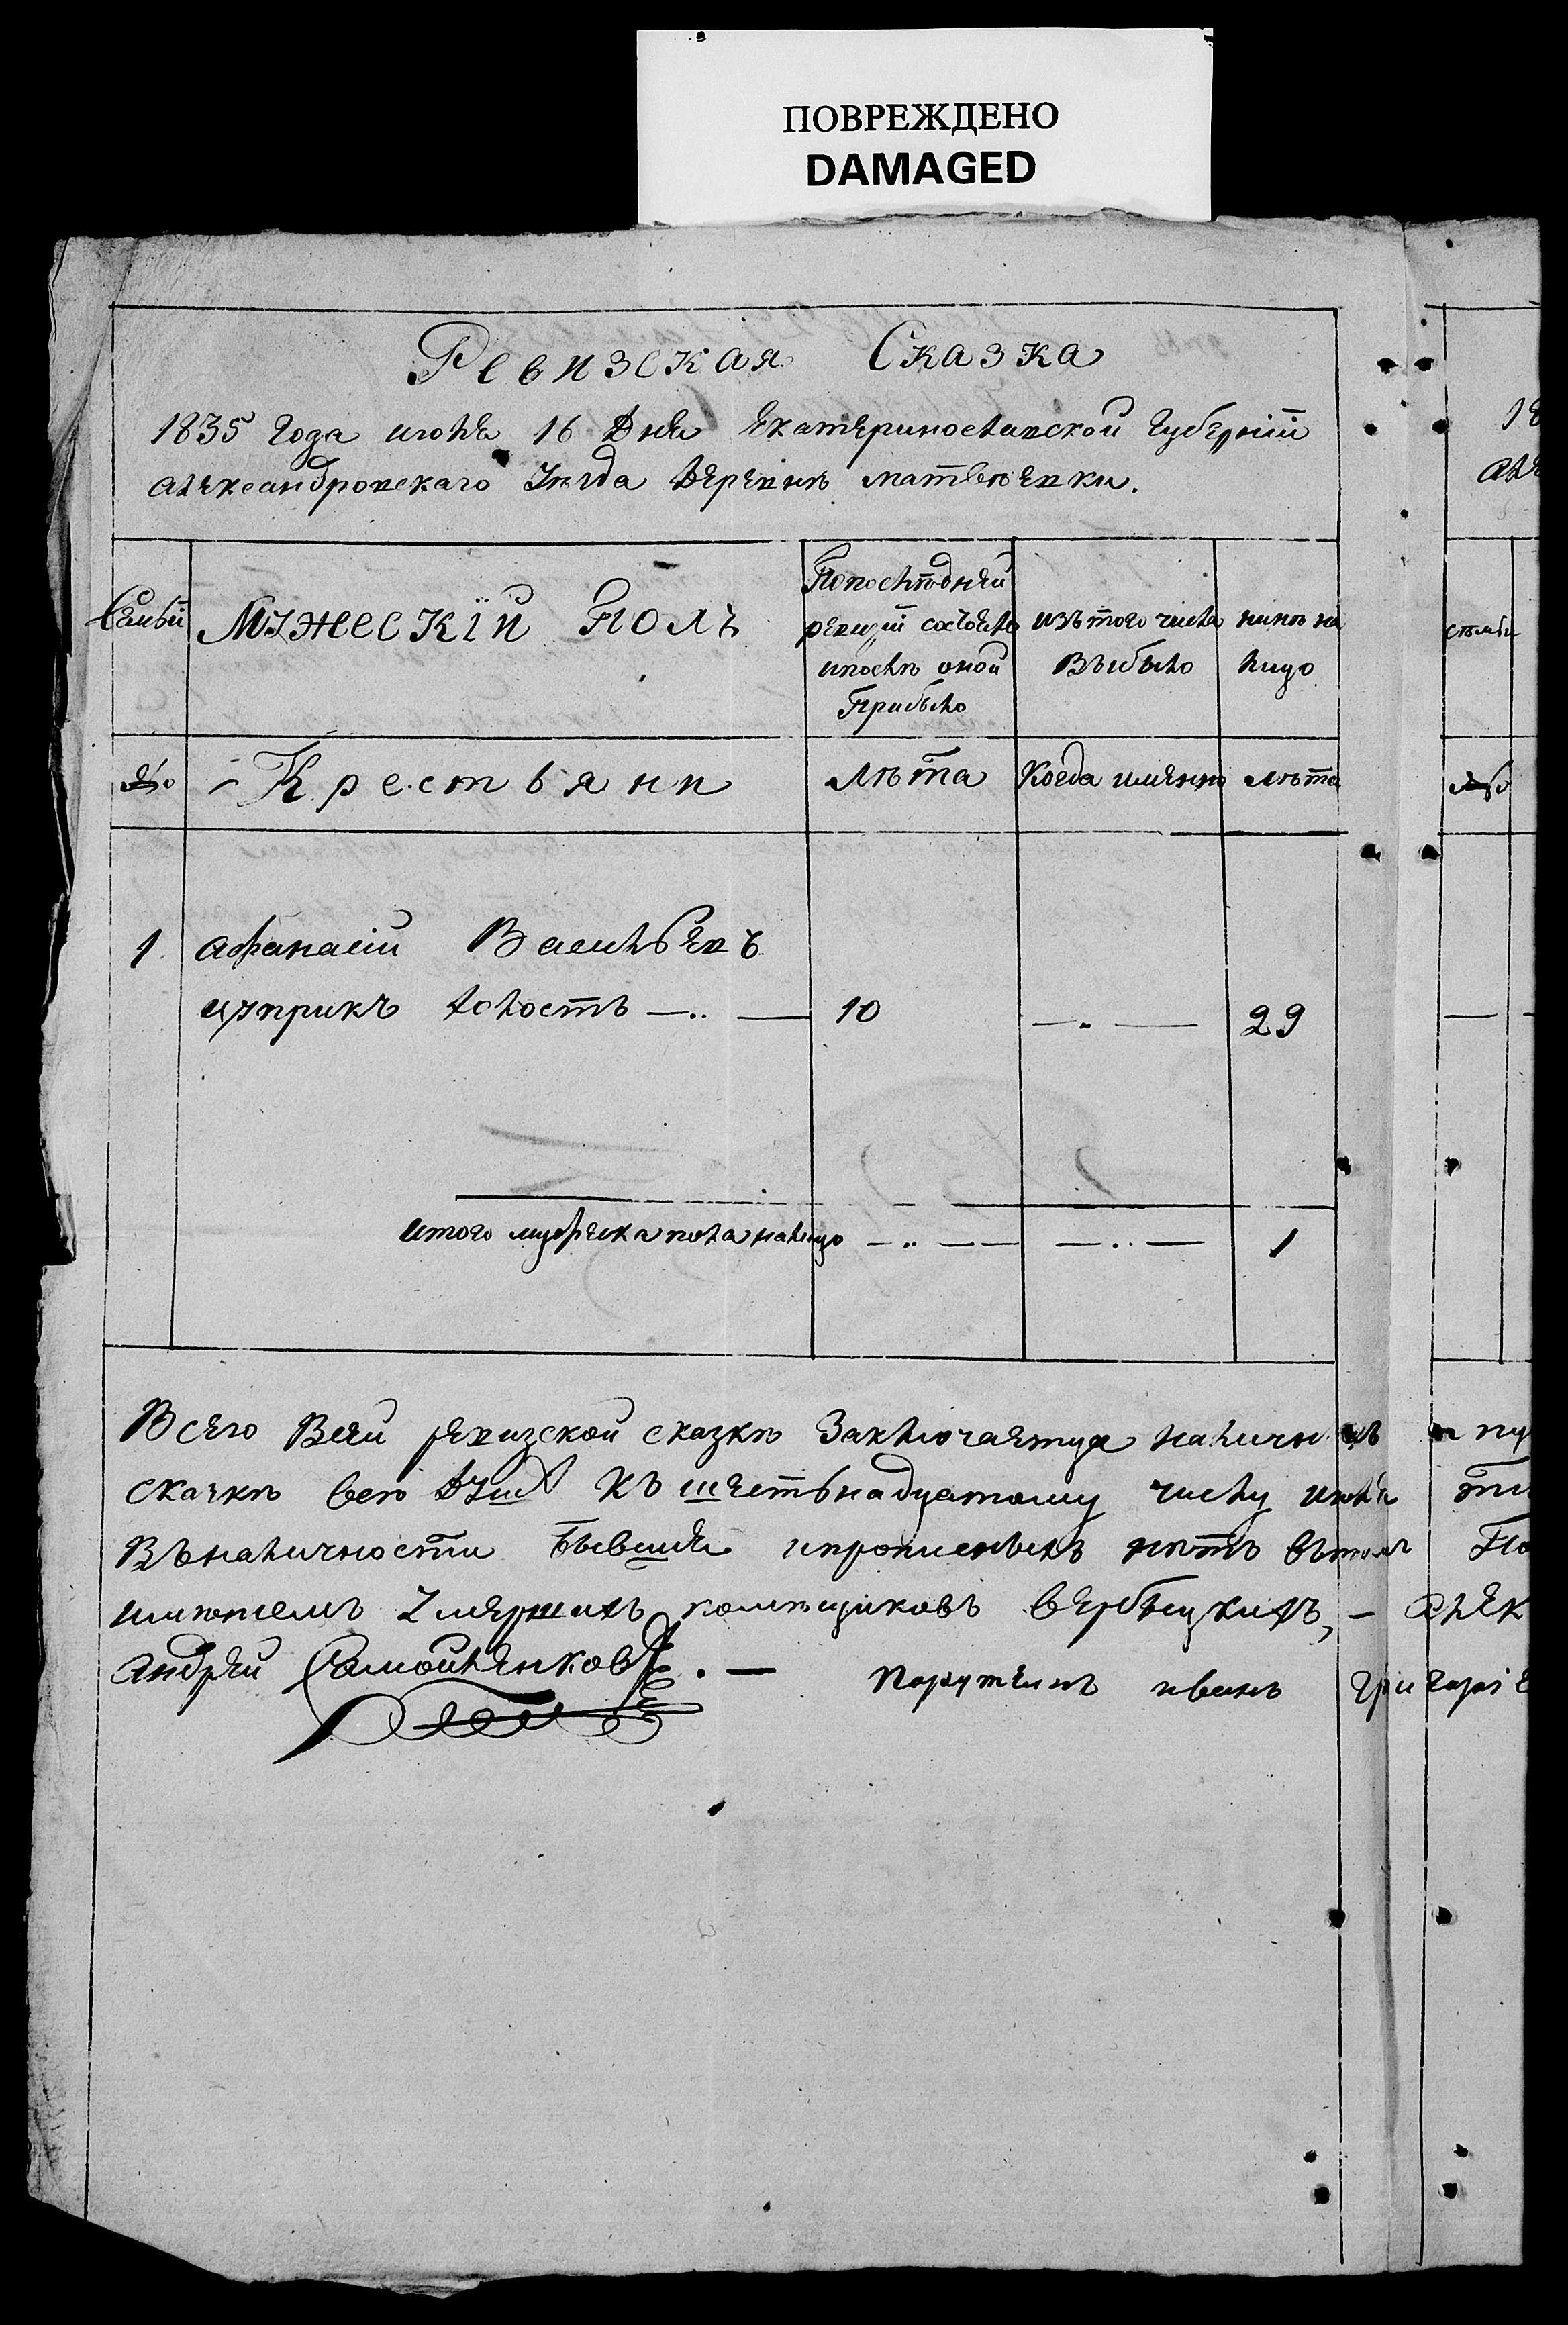 ПОВРЕЖДЕНО
DAMAGED
Ревизская Сказка
1835 года июля 16 Дня Екатеринославской Губернiи
александровскаго Уезда деревнѣ матвѣевки.
Семьи Мужескiй Полъ Попослѣдней ревизiи состояло ипослѣ оной Прибыло изътого числа Выбыло нинѣ на лицо
Крестьяни Лѣта Когда имянно лѣта
1 афанасiй Васильевъ
холостъ —..— 10 —.— 29
итого налицо —..— —..— 1
Всего Всей ревизской сказкѣ Заключаетца наличн
скачкѣ всего Душъ Къ шестьнадцатому числу июля
Въналичности Бывшия ипрописныхъ нѣтъ вътомъ
имѣнiемъ Умершихъ помѣщиковъ Вербыцкихъ, —
андрей Самойленковъ. — Порутчикъ иванъ Григорiе